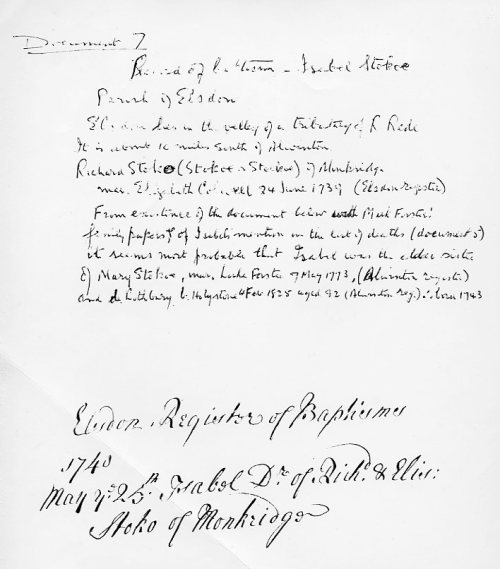 Document 7
Record of baptism - Isabel Stokoe
Parish of Elsdon
Elsdon lies in the valley of a tributary of R Rede
It is about 10 miles South of Alwinton.
Richard Stoko (Stokoe or Stockoe) of Monkridge
mar. Elizabeth 24 June 1739 (Elsdon register)
From existence of the document below with Forster
family papers & of Isabel's mention in the list of deaths (document 5)
it seems most probable that Isabel was the elder sister
of Mary Stokoe, mar. Luke Forster 7 May 1773, (Alwinton register)
and d. b. Holystone Feb 1825 aged 82 (Alwinton reg.) ∴ born 1743
Elsdon Register of Baptisms
1740
May ye 25th Isabel Dr of Richd & Eliz:
Stoko of Monkridge